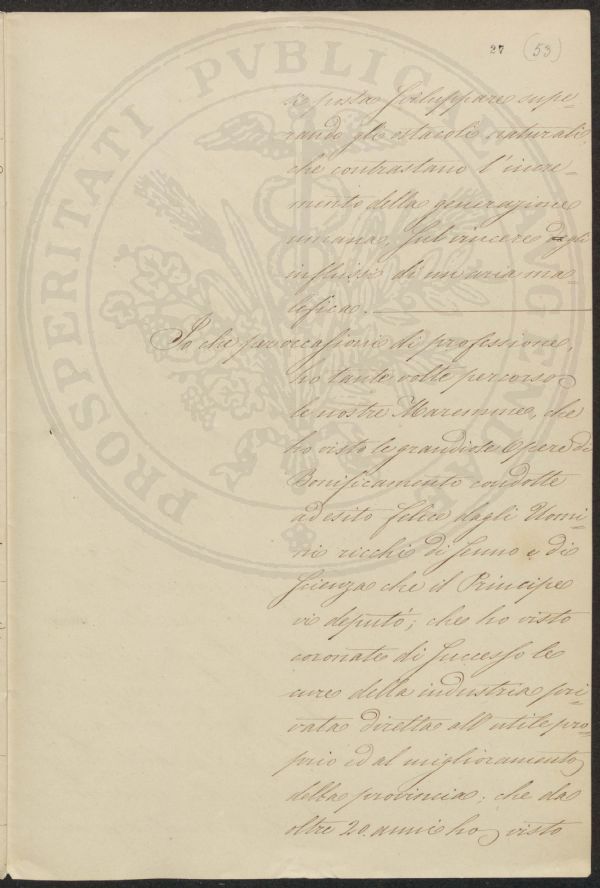 27 (53)
si possa sviluppare supe=
rando gli ostacoli naturali,
che contrastano l'incre=
mento della generazione
umana, sul vincere degli
influssi di un'aria ma=
lefica.
Io che per occasioni di professione,
ho tante volte percorso
le nostre Maremme, che
ho visto le grandiose Opere di
Bonificamento condotte
ad esito felice dagli Uomi=
ni ricchi di senno e di
scienza che il Principe
vi deputò; che ho visto
coronate di successo le
cure della industria pri=
vata diretta all'utile pro=
prio ed al miglioramento
della provincia; che da
oltre 20. anni ho visto
PROSPERITATI PVBLICAE AVGENDAE